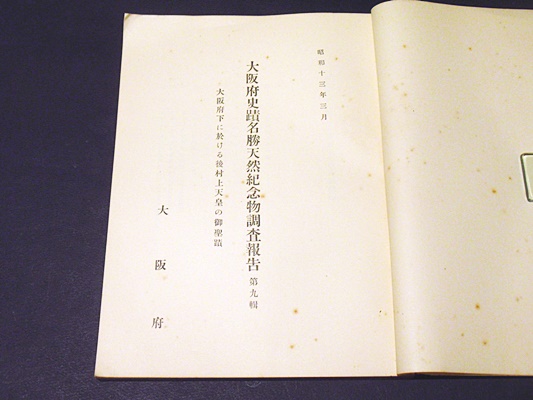 昭和十三年三月
大阪府史蹟名勝天然紀念物調査報告 第九輯
大阪府下に於ける後村上天皇の御聖蹟
大阪府